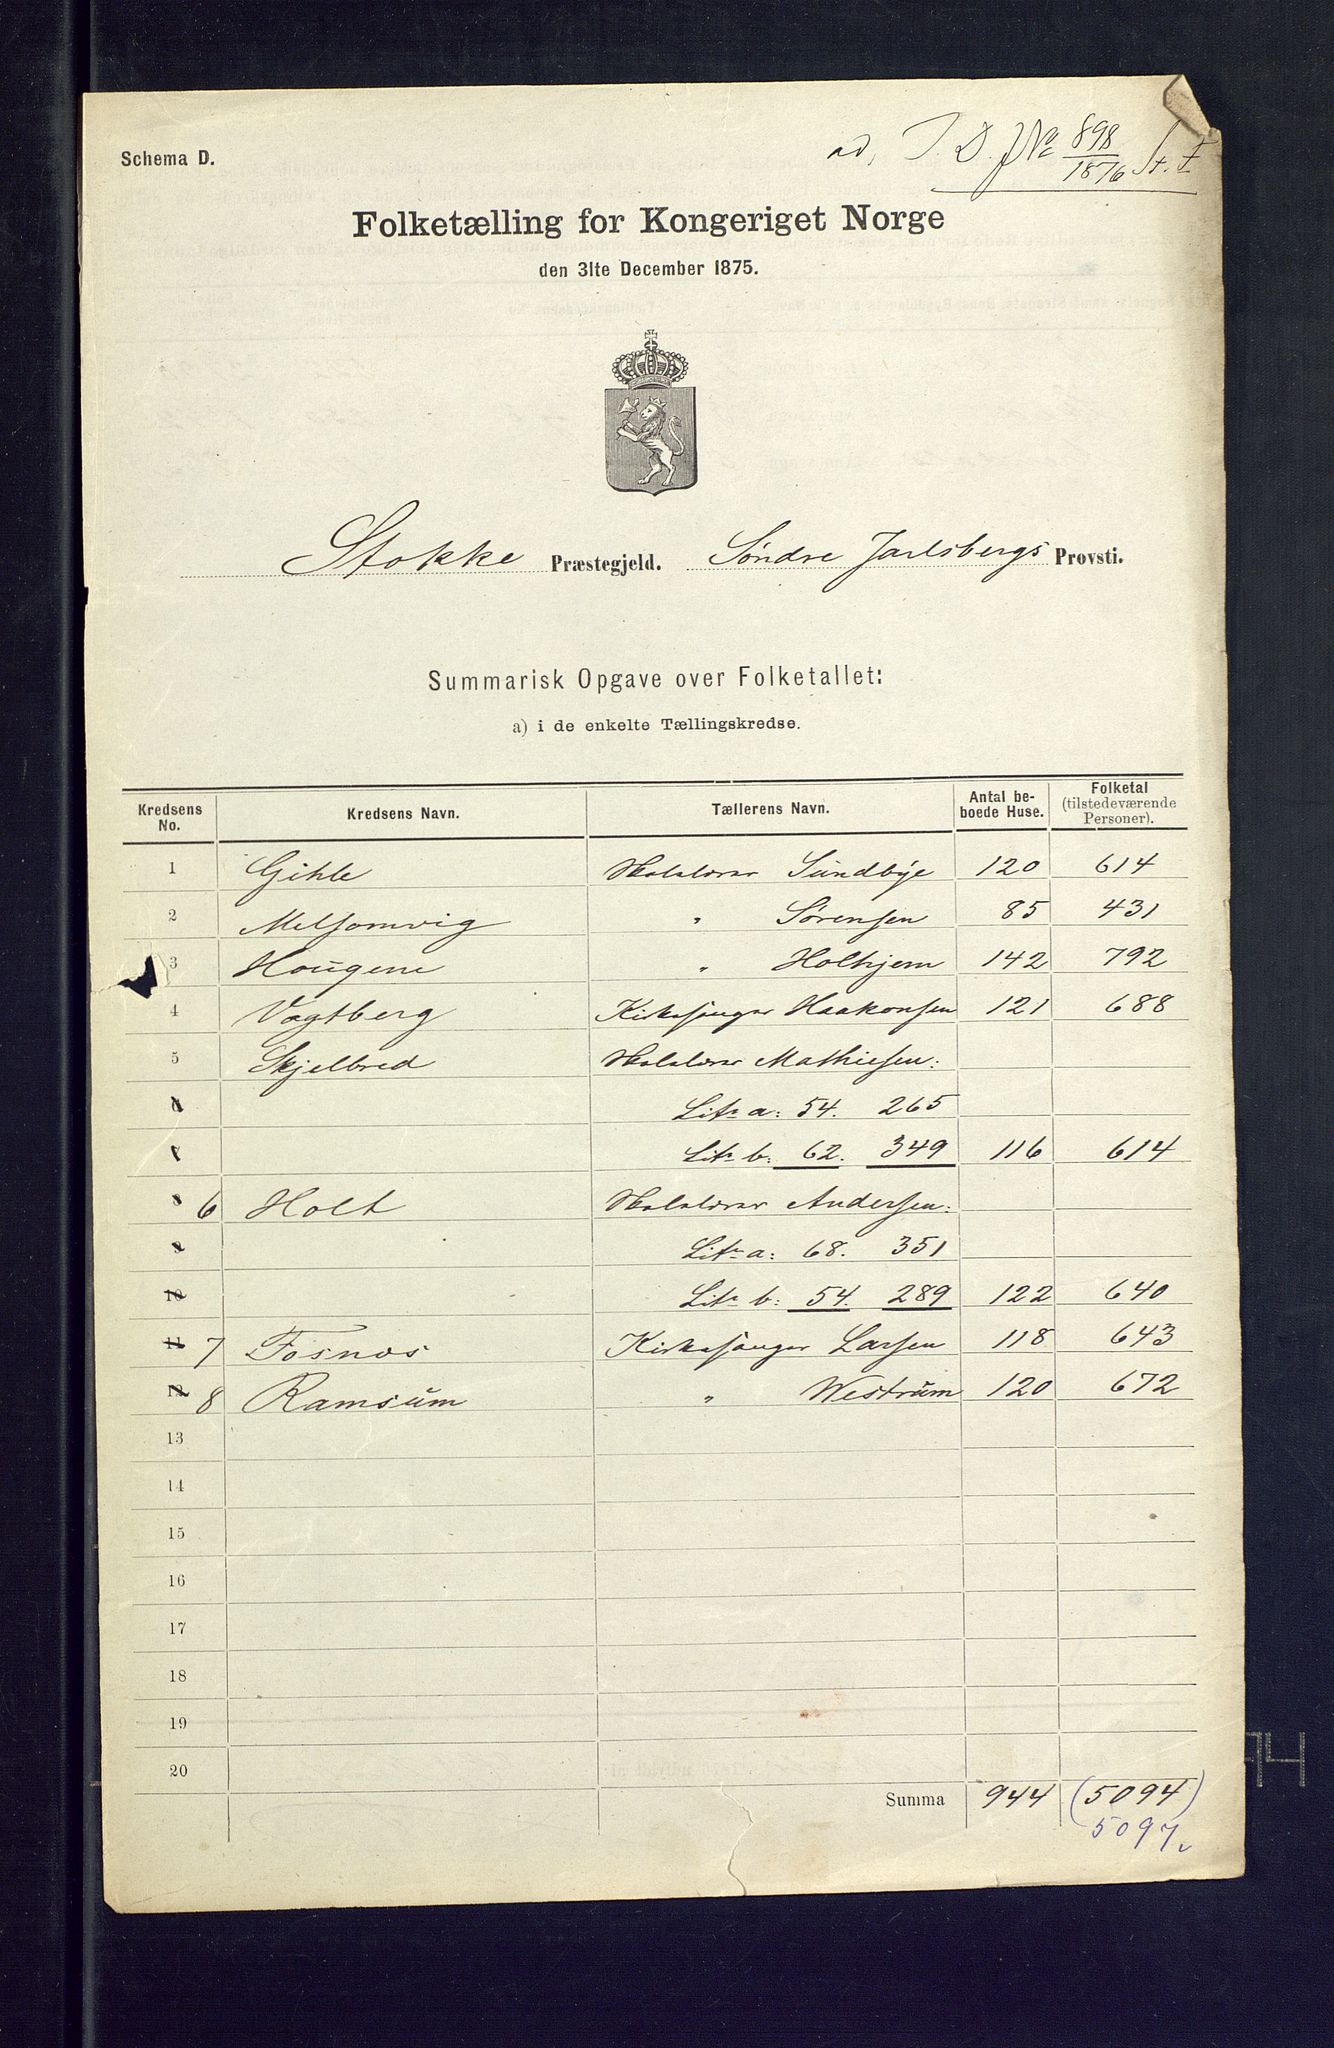 ad, J. D. No 898/1876 St. I
Schema D.
Folketælling for Kongeriget Norge
den 31te December 1875.
Stokke Præstegjeld. Søndre Jarlsbergs Provsti.
Summarisk Opgave over Folketallet:
a) i de enkelte Tællingskredse.
Kredsens No. Kredsens Navn. Tællerens Navn. Antal beboede Huse. Folketal (tilstedeværende Personer).
1 Gihle Skolelærer Sundbye 120 614
2 Melsomvig " Sørensen 85 431
3 Hougene " Holhjem 142 792
4 Vagtberg Kirkesanger Haakonsen 121 688
5 Skjelbred Skolelærer Mathiesen:
6 Litr a: 54. 265
7 Litr b: 62. 349 116 614
8 6 Holt Skolelærer Andersen:
9 Litr a: 68. 351
10 Litr b: 54. 289 122 640
11 7 Fosnæs Kirkesanger Larsen 118 643
12 8 Ramsum " Westrum 120 672
13
14
15
16
17
18
19
20
Summa 944 (5094)
5097